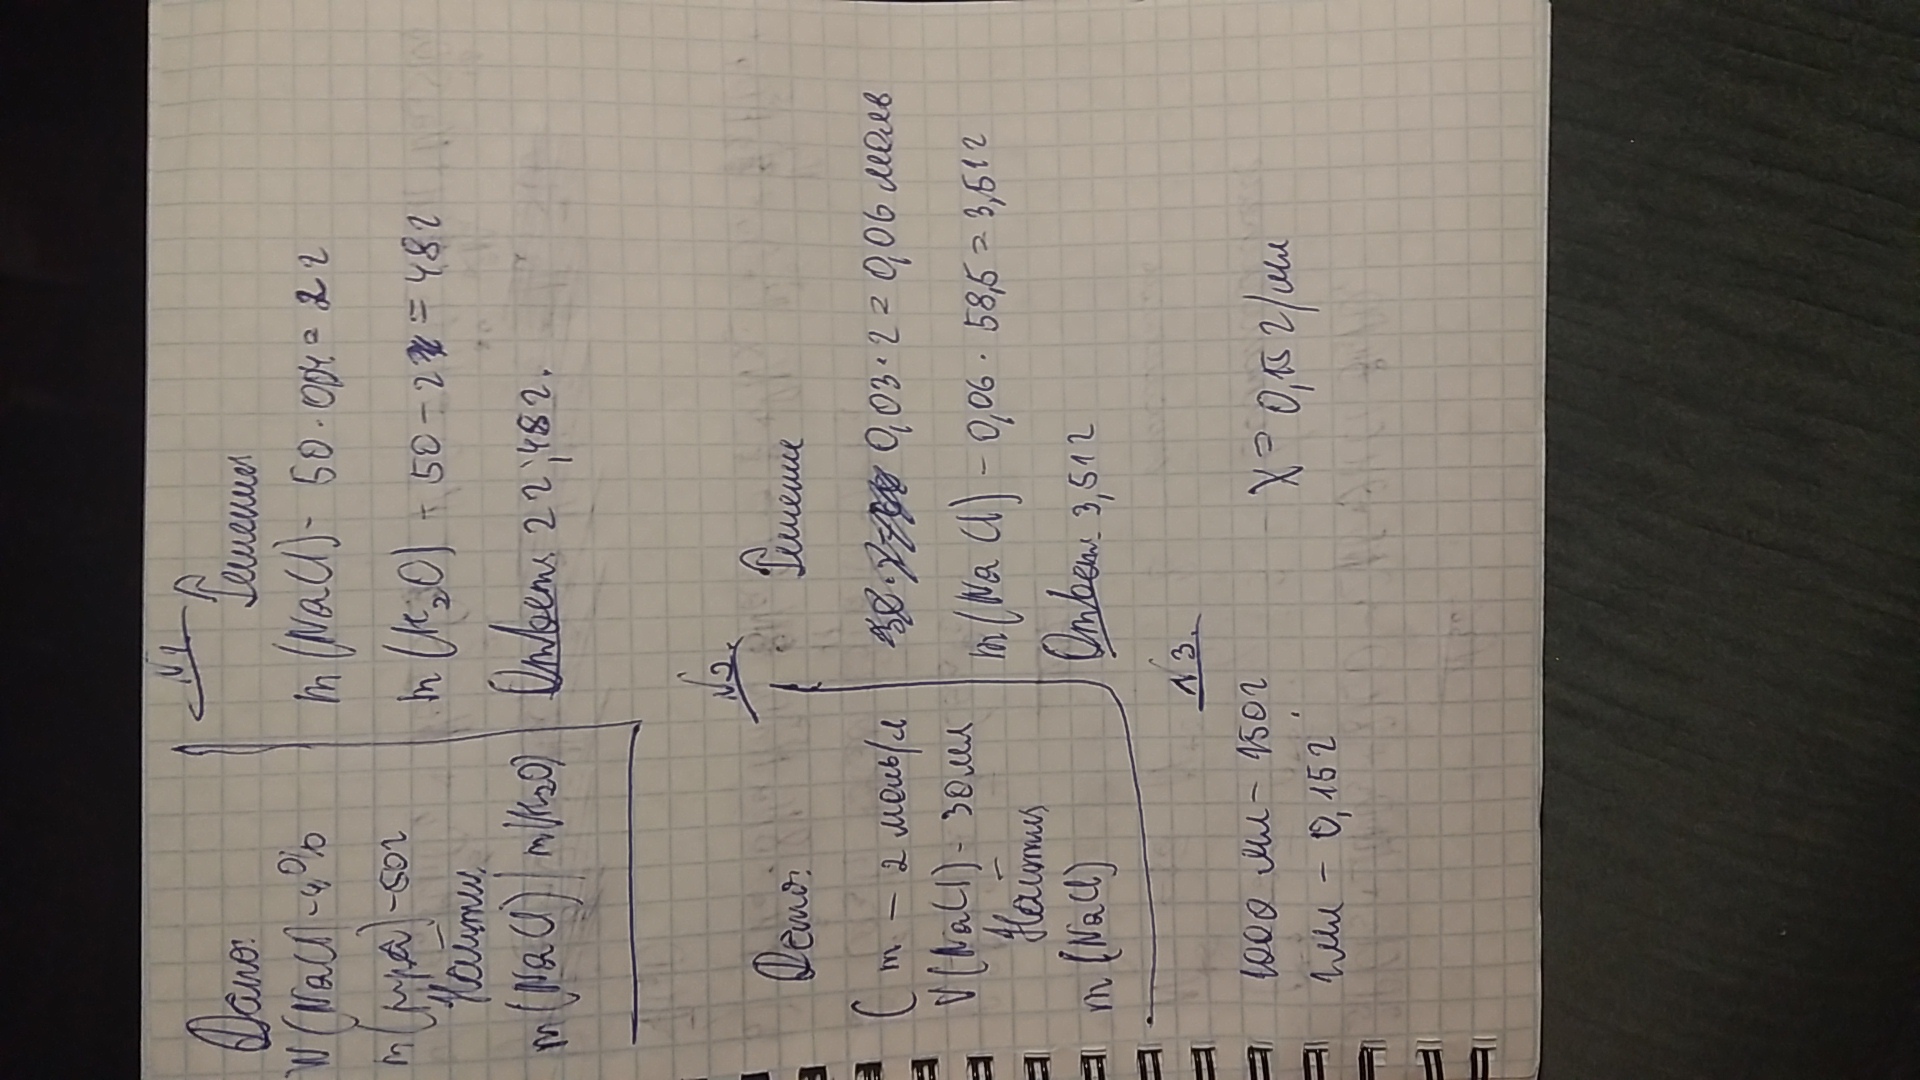 N1
Дано:
W(NaCl)-4%
m(р-ра)-50г
Найти:
m(NaCl) m(H2O)
Решение
m(NaCl)- 50·0,04=2г
m(H2O) - 50-2=48г
Ответ: 2г; 48г.
N2.
Дано:
Cm - 2 моль/л
V(NaCl)-30мл
Найти:
m(NaCl)
Решение
0,03·2=0,06 моль
m(NaCl)-0,06·58,5=3,51г
Ответ: 3,51г
N3.
1000 мл-150г
1мл-0,15г
X=0,15 г/мл